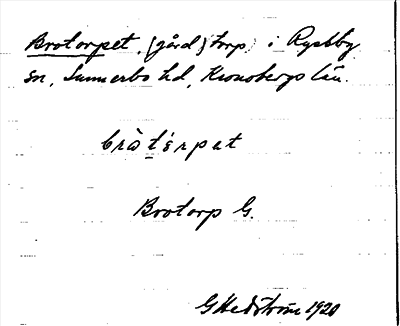 Brotorpet, (gård) torp, i Ryssby
sn, Sunnerbo hd, Kronobergs län.
bròtǝrpet
Brotorp G.
G Hedström 1920